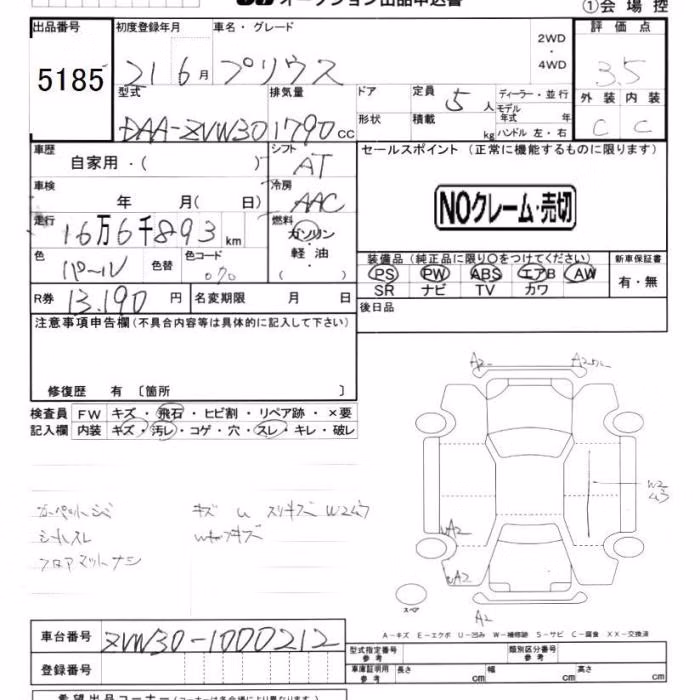 オークション出品申込書
①会場控
出品番号
5185
初度登録年月
21 6月
車名・グレード
プリウス
2WD
・
4WD
評価点
3.5
外装 内装
C C
型式
DAA-ZVW30
排気量
1790cc
ドア
形状
定員
5人
積載
kg
ディーラー・並行
モデル年式 年
ハンドル 左・右
車歴
自家用・( )
シフト
AT
セールスポイント (正常に機能するものに限ります)
NOクレーム・売切
車検
年 月( 日)
冷房
AAC
走行
16万6千893km
燃料
ガソリン
軽油
( )
色
パール
色替
色コード
070
装備品(純正品に限り○をつけてください)
PS PW ABS エアB AW
SR ナビ TV カワ
新車保証書
有・無
R券
13.190円
名変期限 月 日
後日品
注意事項申告欄(不具合内容等は具体的に記入して下さい)
修復歴 有 〔箇所 〕
検査員 FW キズ・飛石・ヒビ割・リペア跡・×要
記入欄 内装 キズ・汚レ・コゲ・穴・スレ・キレ・破レ
シートスレ
フロアマットナシ
A2
A2
W2
A2
A2
A2
スペア
A-キズ E-エクボ U-凹み W-補修跡 S-サビ C-腐食 XX-交換済
車台番号
ZVW30-1000212
登録番号
型式指定番号
参考
類別区分番号
参考
車庫証明用
参考
長さ cm 幅 cm 高さ cm
希望出品コーナー